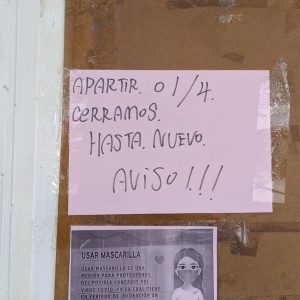 APARTIR. 01/4.
CERRAMOS.
HASTA. NUEVO.
AVISO!!!
USAR MASCARILLA
USAR MASCARILLA ES UNA
MEDIDA PARA PROTEGERNOS
DEL POSIBLE CONTAGIO DEL
VIRUS COVID. EN LA CUAL TIENE
UN PERIODO DE INCUBACION EN